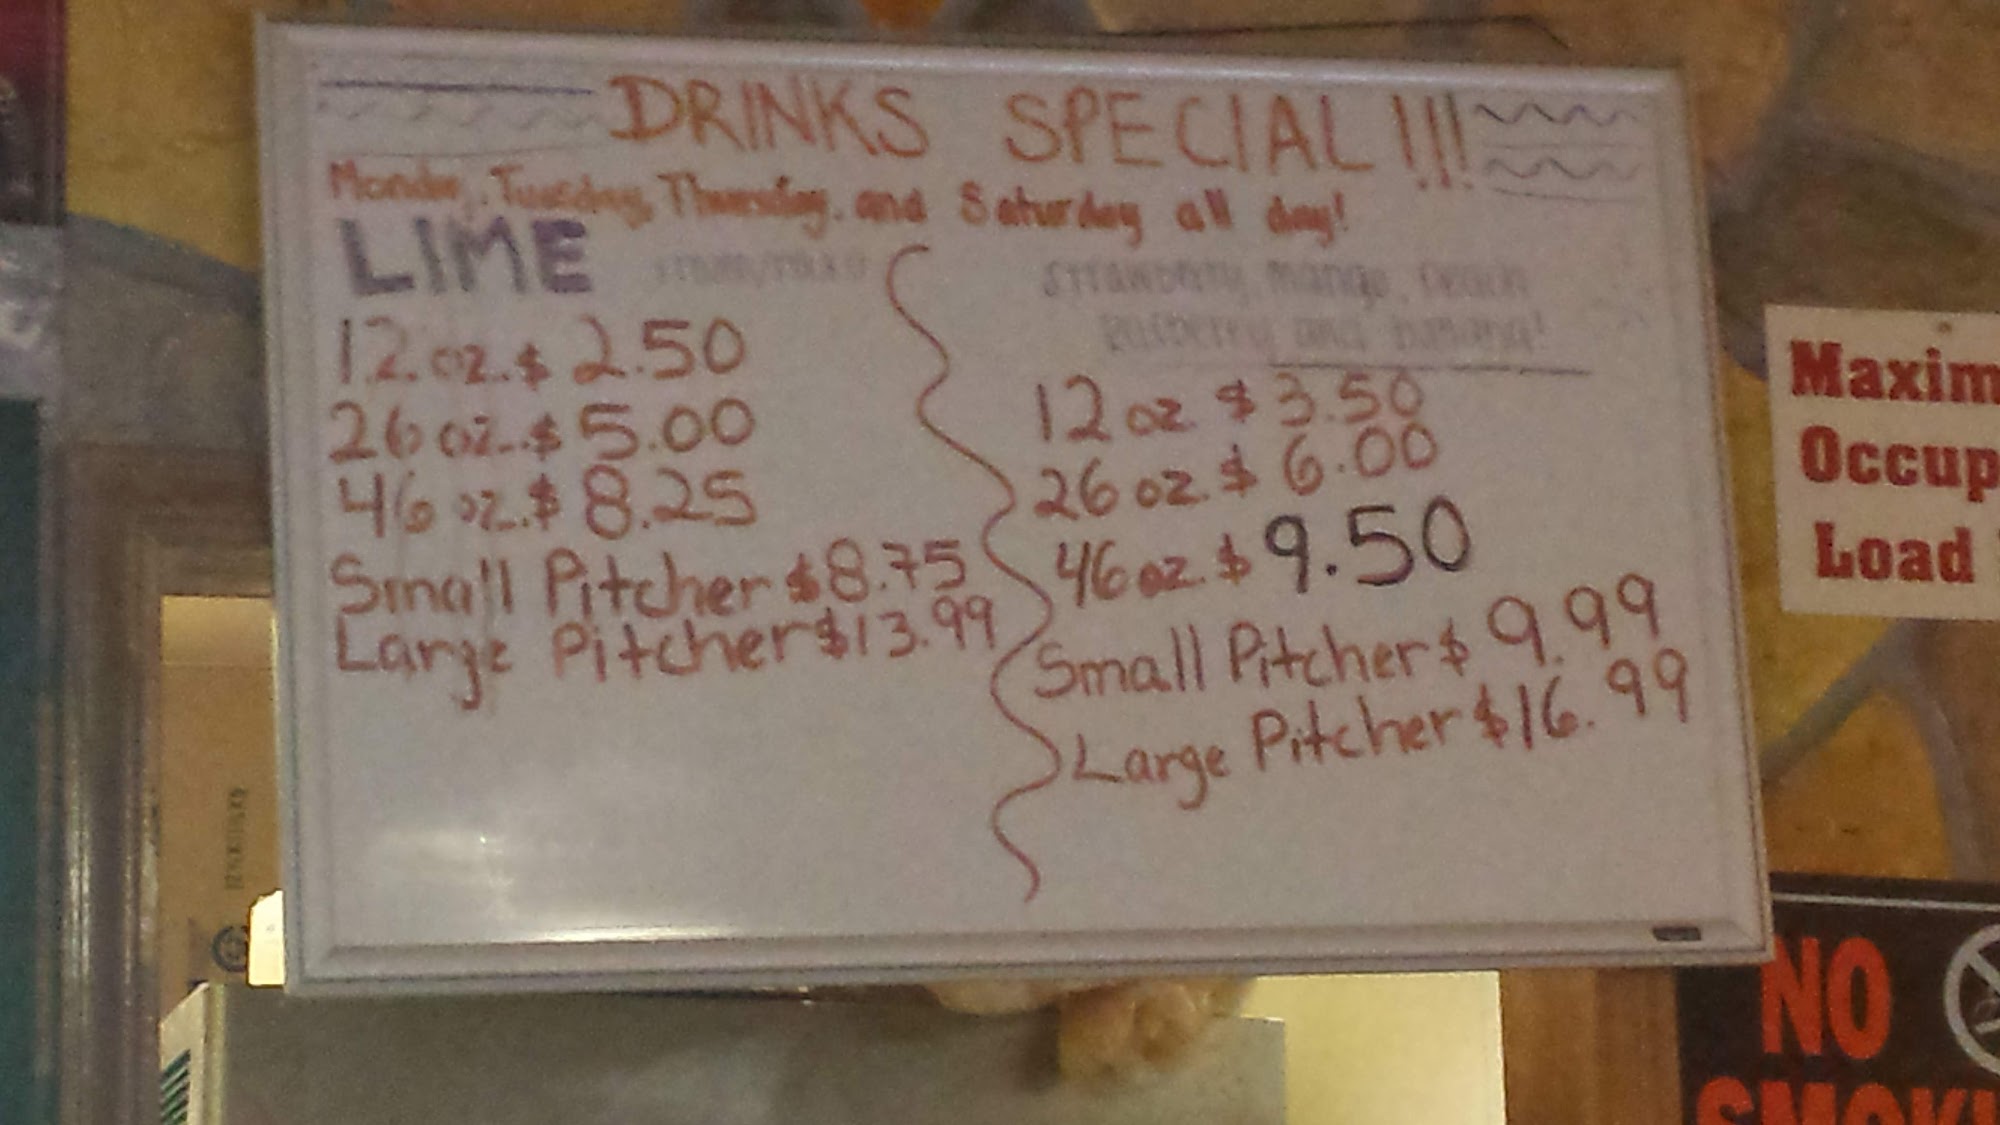 DRINKS SPECIAL!!!
Monday, Tuesday, Thursday, and Saturday all day!
LIME
12 oz. $ 2.50
26 oz. $ 5.00
46 oz. $ 8.25
Small Pitcher $8.75
Large Pitcher $13.99
Strawberry, mango, peach
and banana!
12 oz $ 3.50
26 oz. $ 6.00
46 oz. $ 9.50
Small Pitcher $ 9.99
Large Pitcher $16.99
Maxim
Occup
Load
NO
SMOKI